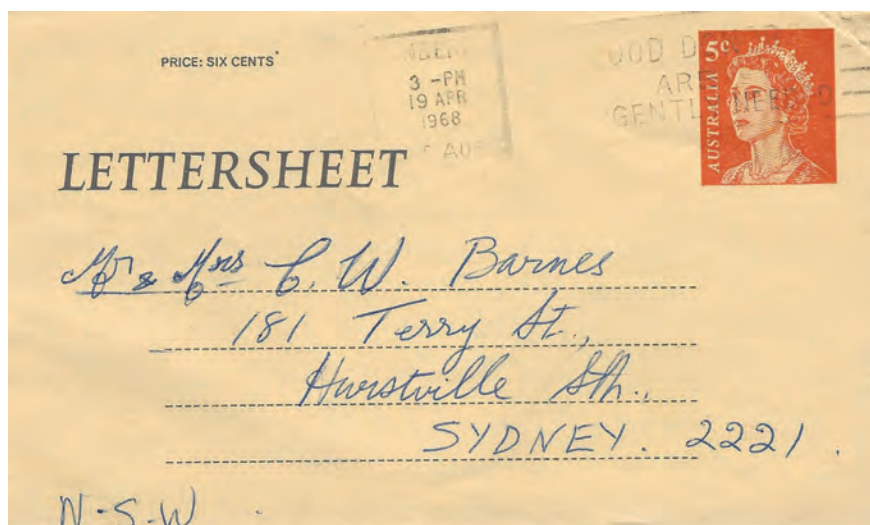 PRICE: SIX CENTS
3 -PM
19 APR
1968
ARE
5c
AUSTRALIA
LETTERSHEET
Mr & Mrs C. W. Barnes
181 Terry St.,
Hurstville Sth.,
SYDNEY. 2221.
N.S.W